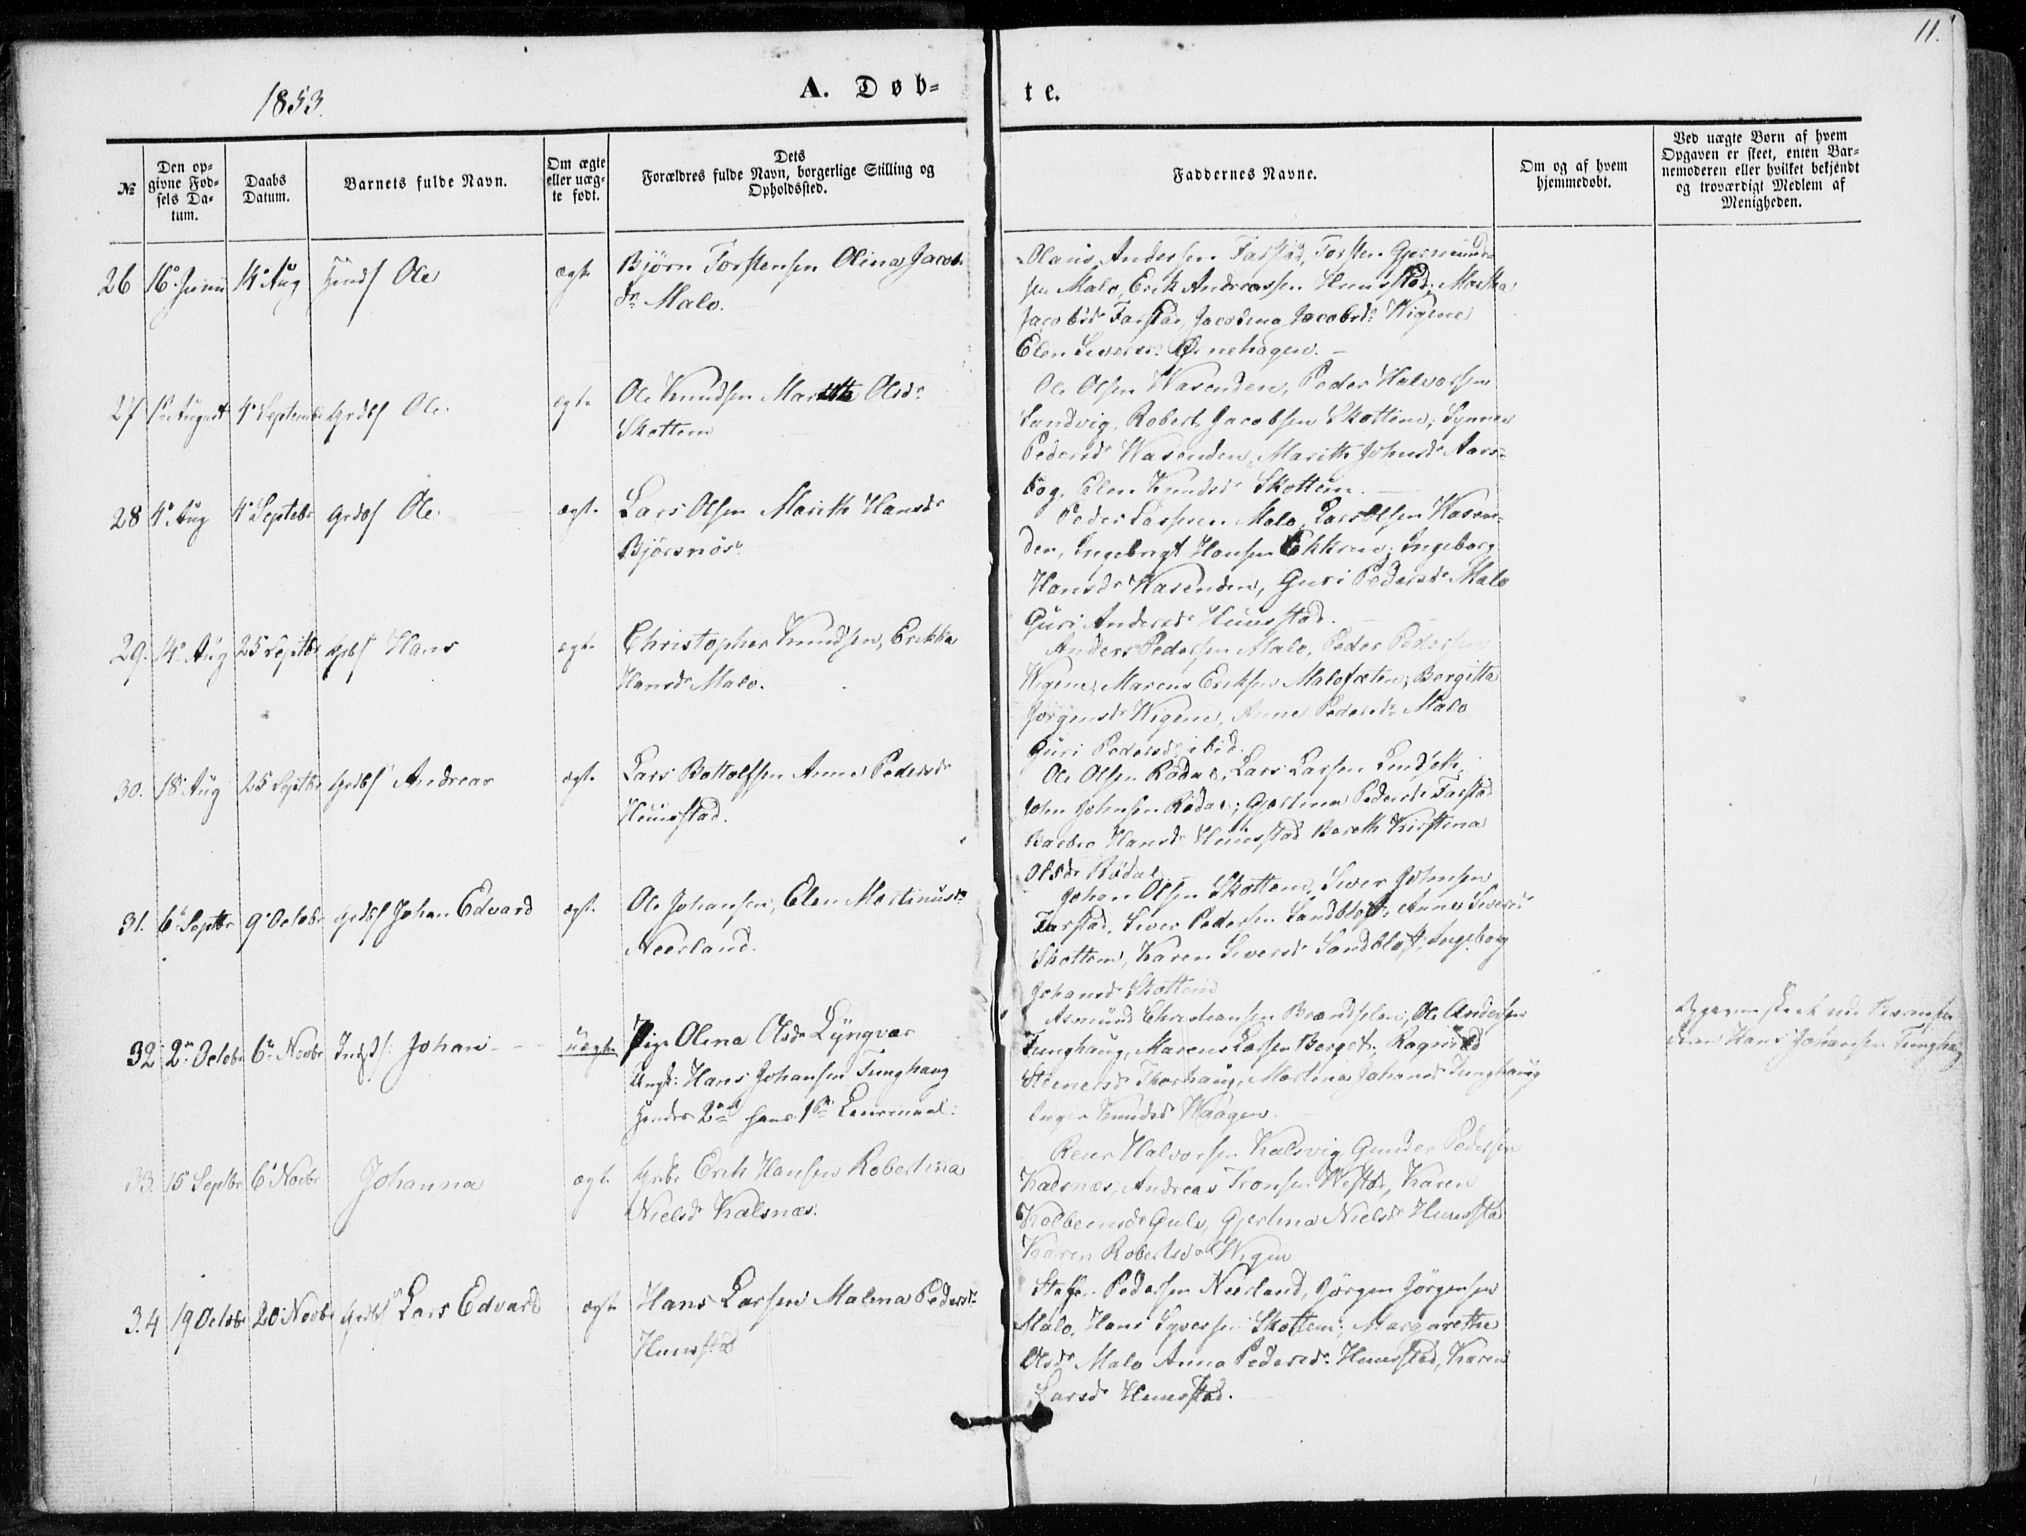 11.
1853.
A. Døb=
te.
№
Den op=
givne Fød=
sels Da=
tum.
Daabs
Datum.
Barnets fulde Navn.
Om ægte
eller uæg=
te født.
Dets
Forældres fulde Navn, borgerlige Stilling og
Opholdssted.
Faddernes Navne.
Om og af hvem
hjemmedøbt.
Ved uægte Børn af hvem
Opgaven er skeet, enten Bar=
nemoderen eller hvilket bekjendt
og troværdigt Medlem af
Menigheden.
26 16 Juni 14 Aug Ole ægte Bjørn Torstensen Olina Jacob
dr Malo.
Olaus Andersen Farstad, Torsten Gjermunds
sen Malo, Erik Andreassen Huusstad, Martha
Jacobsdr Farstad, Jacobina Jacobsdr Wigene
Elen Siversdr Ørnehagen.
27 1 August 4 September Grdbs Ole ægte Ole Knudsen Marith Olsdr
Skottem
Ole Olsen Wasenden, Peder Halvorsen
Sandvig, Robert Jacobsen Skottem, Synnev
Pedersdr Wasenden, Marith Johnsdr Aars=
bog, Elen Knudsdr Skottem.
28 4 Aug 4 Septebr Grdbs Ole ægte Lars Olsen Marith Hansdr
Bjørsnøs
Peder Malo, Lars Olsen Wasen=
den, Ingebrigt Hansen Ekkren, Ingeborg
Hansdr Wasenden, Guri Pedersdr Malo
Guri Andersdr Huusstad.
29. 14 Aug 25 Septbr Grdbs Hans ægte Christopher Knudsen, Erikka
Hansdr Malo.
Anders Pedersen Malo, Peder Pedersen
Wigene, Marcus Eriksen Malosæter, Borgitta
Jørgensdr Wigene, Anne Pedersdr Malo
Guri Pedersdr ibid.
30. 18 Aug 25 Septbr Grdbs Andreas ægte Lars Bottolfsen Anne Pedersdr
Huusstad.
Ole Olsen Rødal, Lars Larsen
John Johnsen Rødal, Gjertina Pedersdr Farstad
Barbro Hansdr Huusstad Bereth Kristina
Olsdr Rødal
31. 6 Septbr 9 Octobr Grdbs Johan Edvard ægte Ole Johansen, Elen Martinusdr
Neerland.
Johan Olsen Skottem, Siver Johnsen
Farstad, Siver Pedersen Sandbløst, Anne Siversdr
Skottem, Karen Siversdr Sandbløst, Ingeborg
Johansdr Skottem
32 2 Octobr 6 Novbr Johan uægte Pige Olina Olsdr Lyngvær
Ungk: Hans Johansen Tunghaug
Hendes 2det hans 1ste Leiermaal.
Asmund Christiansen Ole Andersen
Tunghaug, Marcus Larsen Berget, Ragnild
Thorhaug, Martina Johansdr Tunghaug
Inger Knudsdr Haagen.
Opgaven skeet ved Barnefa
deren Hans Johansen Tunghaug
33. 15 Septbr 6 Novbr Johanna ægte Grdbr Erik Hansen Robertina
Nielsdr Kalsnæs.
Reier Halvorsen Kalsvig Gunder Pedersen
Kalsnæs, Andreas Tronsen Karen
Kolbeensdr Gule, Gjertina Nielsdr Huusstad
Karen Robertsdr Wigen
34 19 Octobr 20 Novbr Grdbs Lars Edvard ægte Hans Larsen Malena Pedersdr
Huusstad
Stefen Pedersen Neerland, Jørgen Jørgensen
Malo, Hans Syversen Skottem, Margarethe
Olsdr Malo Anna Pedersdr Huusstad, Karen
Larsdr Huusstad.